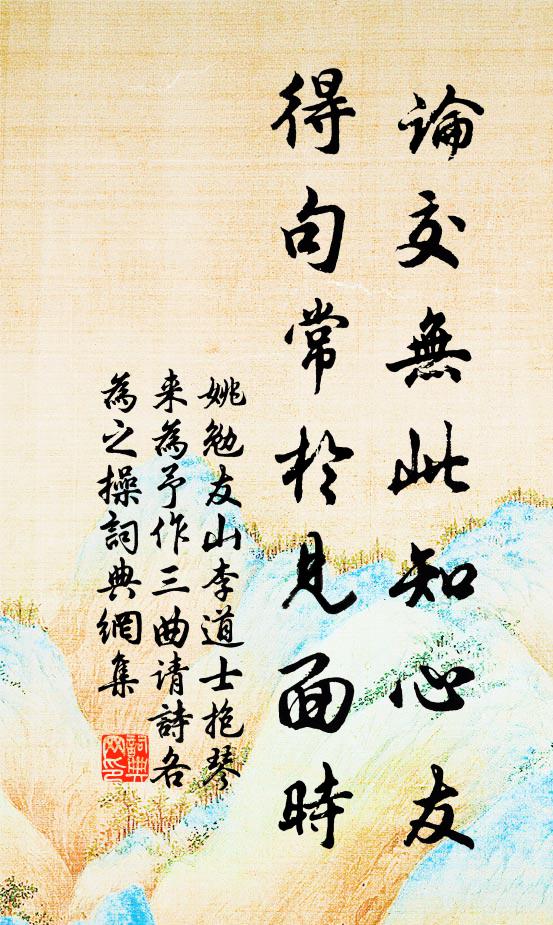 論交無此知心友
得句常於見面時
姚勉友山李道士抱琴
来為予作三曲请詩各
為之操詞典網集
詞典网印